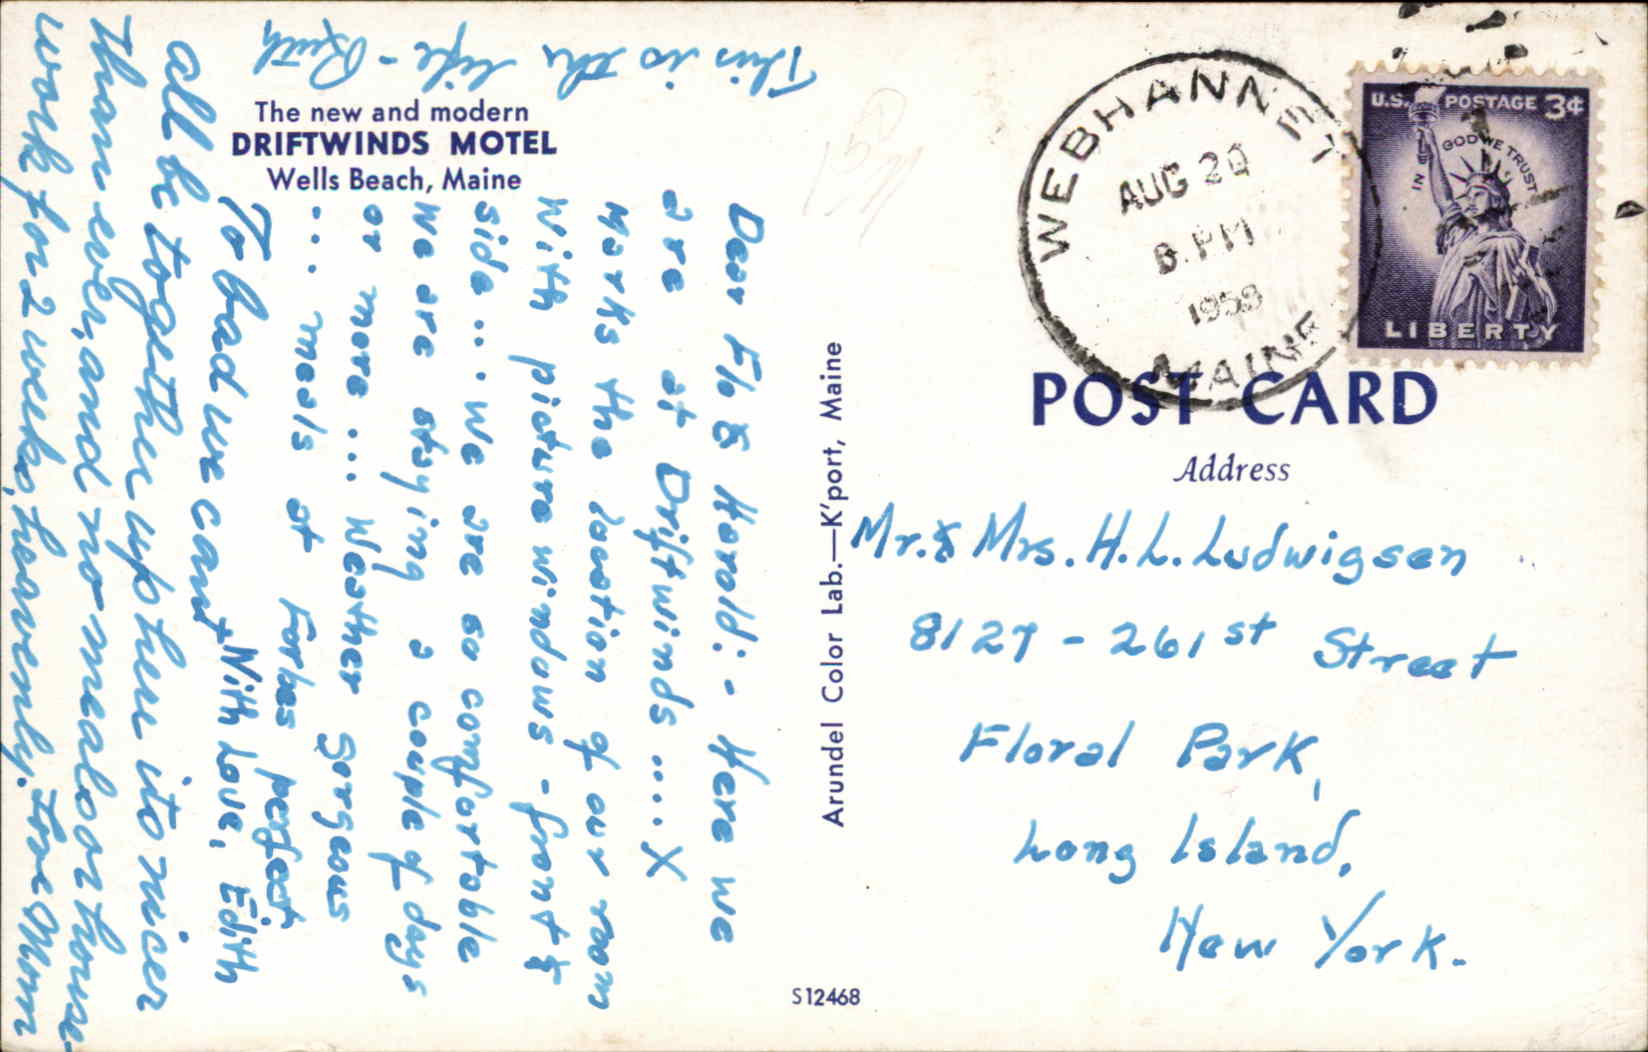 This is the life - Ruth
The new and modern
DRIFTWINDS MOTEL
Wells Beach, Maine
Dear Flo & Harold: - Here we
are at Driftwinds .... X
marks the location of our room
with picture windows - front &
side ... We are so comfortable
We are staying a couple of days
or more ... Weather gorgeous
... meals at Forbes perfect.
With Love, Edith
To bad we cant
all be together up here its nicer
than ever, and no meals or house-
work for 2 weeks, heavenly. Love Mom
Arundel Color Lab.—K'port, Maine
S12468
WEBHANNET
AUG 20
8. PM
1958
MAINE
U.S. POSTAGE 3¢
IN GOD WE TRUST
LIBERTY
POST CARD
Address
Mr. & Mrs. H. L. Ludwigsen
8127 - 261st Street
Floral Park,
Long Island,
New York.